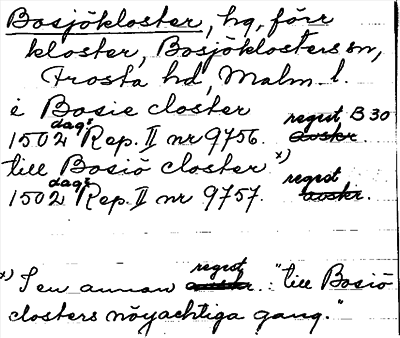 Bosjökloster, hg, förr
kloster, Bosjöklosters sn,
Frosta hd, Malm. l.
i Bosie closter
1502 dag: Rep. II nr 9756. regest, B 30 avskr.
till Bosiö closter x)
1502 dag: Rep. II nr 9757. regest avskr.
x) I en annan regest avskr.: "till Bosiö
closters nöyachtiga gang."